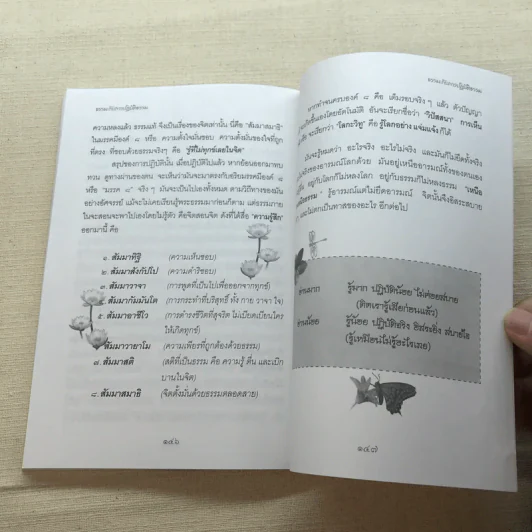 ธรรมะกับการปฏิบัติธรรม
ความหลงแล้ว ธรรมแท้ จึงเป็นเรื่องของจิตเท่านั้น นี่คือ "สัมมาสมาธิ"
ในมรรคมีองค์ ๘ หรือ ความตั้งใจมั่นชอบ ความตั้งมั่นของใจที่ถูก
ที่ตรง ที่ชอบด้วยธรรมจริงๆ คือ "รู้ที่ไม่ทุกข์เลยในจิต"
สรุปของการปฏิบัตินั้น เมื่อปฏิบัติไปแล้ว หากย้อนออกมาทบ
ทวน ดูทางผ่านของตน จะเห็นว่ามาตรงกับอริยมรรคมีองค์ ๘
หรือ "มรรค ๘" จริงๆ มันจะเป็นไปเองทั้งหมด ตามวิถีทางของมัน
อย่างอัศจรรย์ แม้จะไม่เคยเรียนรู้พระธรรมมาก่อนก็ตาม แต่ธรรมภาย
ในจะสอนจะพาไปเองโดยไม่รู้ตัว คือจิตสอนจิต ดังที่ได้สื่อ "ความรู้สึก"
ออกมานี้ คือ
๑. สัมมาทิฐิ (ความเห็นชอบ)
๒. สัมมาสังกัปโป (ความดำริชอบ)
สัมมาวาจา (การพูดที่เป็นไปเพื่อออกจากทุกข์)
สัมมากัมมันโต (การกระทำที่บริสุทธิ์ ทั้ง กาย วาจา ใจ)
๕. สัมมาอาชีโว (การดำรงชีวิตที่สุจริต ไม่เบียดเบียนใคร
ให้เกิดทุกข์)
สัมมาวายาโม (ความเพียรที่ถูกต้องด้วยธรรม)
๗. สัมมาสติ (สติที่เป็นธรรม คือ ความรู้ ตื่น และเบิก
บานในจิต)
๘. สัมมาสมาธิ (จิตตั้งมั่นด้วยธรรมตลอดสาย)
๑๔๖
ธรรมะกับการปฏิบัติธรรม
หากทำจนครบองค์ ๘ คือ เต็มรอบจริงๆ แล้ว ตัวปัญญา
เกิดขึ้นเองโดยอัตโนมัติ อันจะเรียกว่า "วิปัสสนา" การเห็น
จะเรียกว่า "โลกะวิทู" คือ รู้โลกอย่าง แจ่มแจ้ง ก็ได้
มันจะรู้หมดว่า อะไรจริง อะไรไม่จริง และมันก็ไม่ยึดทั้งจริง
จริงของอารมณ์โลกด้วย มันอยู่เหนืออารมณ์ทั้งของตนเอง
อยู่กับโลกก็ไม่หลงโลก อยู่กับธรรมก็ไม่หลงธรรม "เหนือ
ธรรม" รู้อารมณ์แต่ไม่ยึดอารมณ์ จิตนั้นจึงอิสระสบาย
และไม่ตกเป็นทาสของอะไร อีกต่อไป
อ่านมาก รู้มาก ปฏิบัติน้อย ไม่ค่อยสบาย
(ติดเรารู้เสียก่อนแล้ว)
อ่านน้อย รู้น้อย ปฏิบัติจริง อิสระยิ่ง สบายใจ
(รู้เหมือนไม่รู้อะไรเลย)
๑๔๗